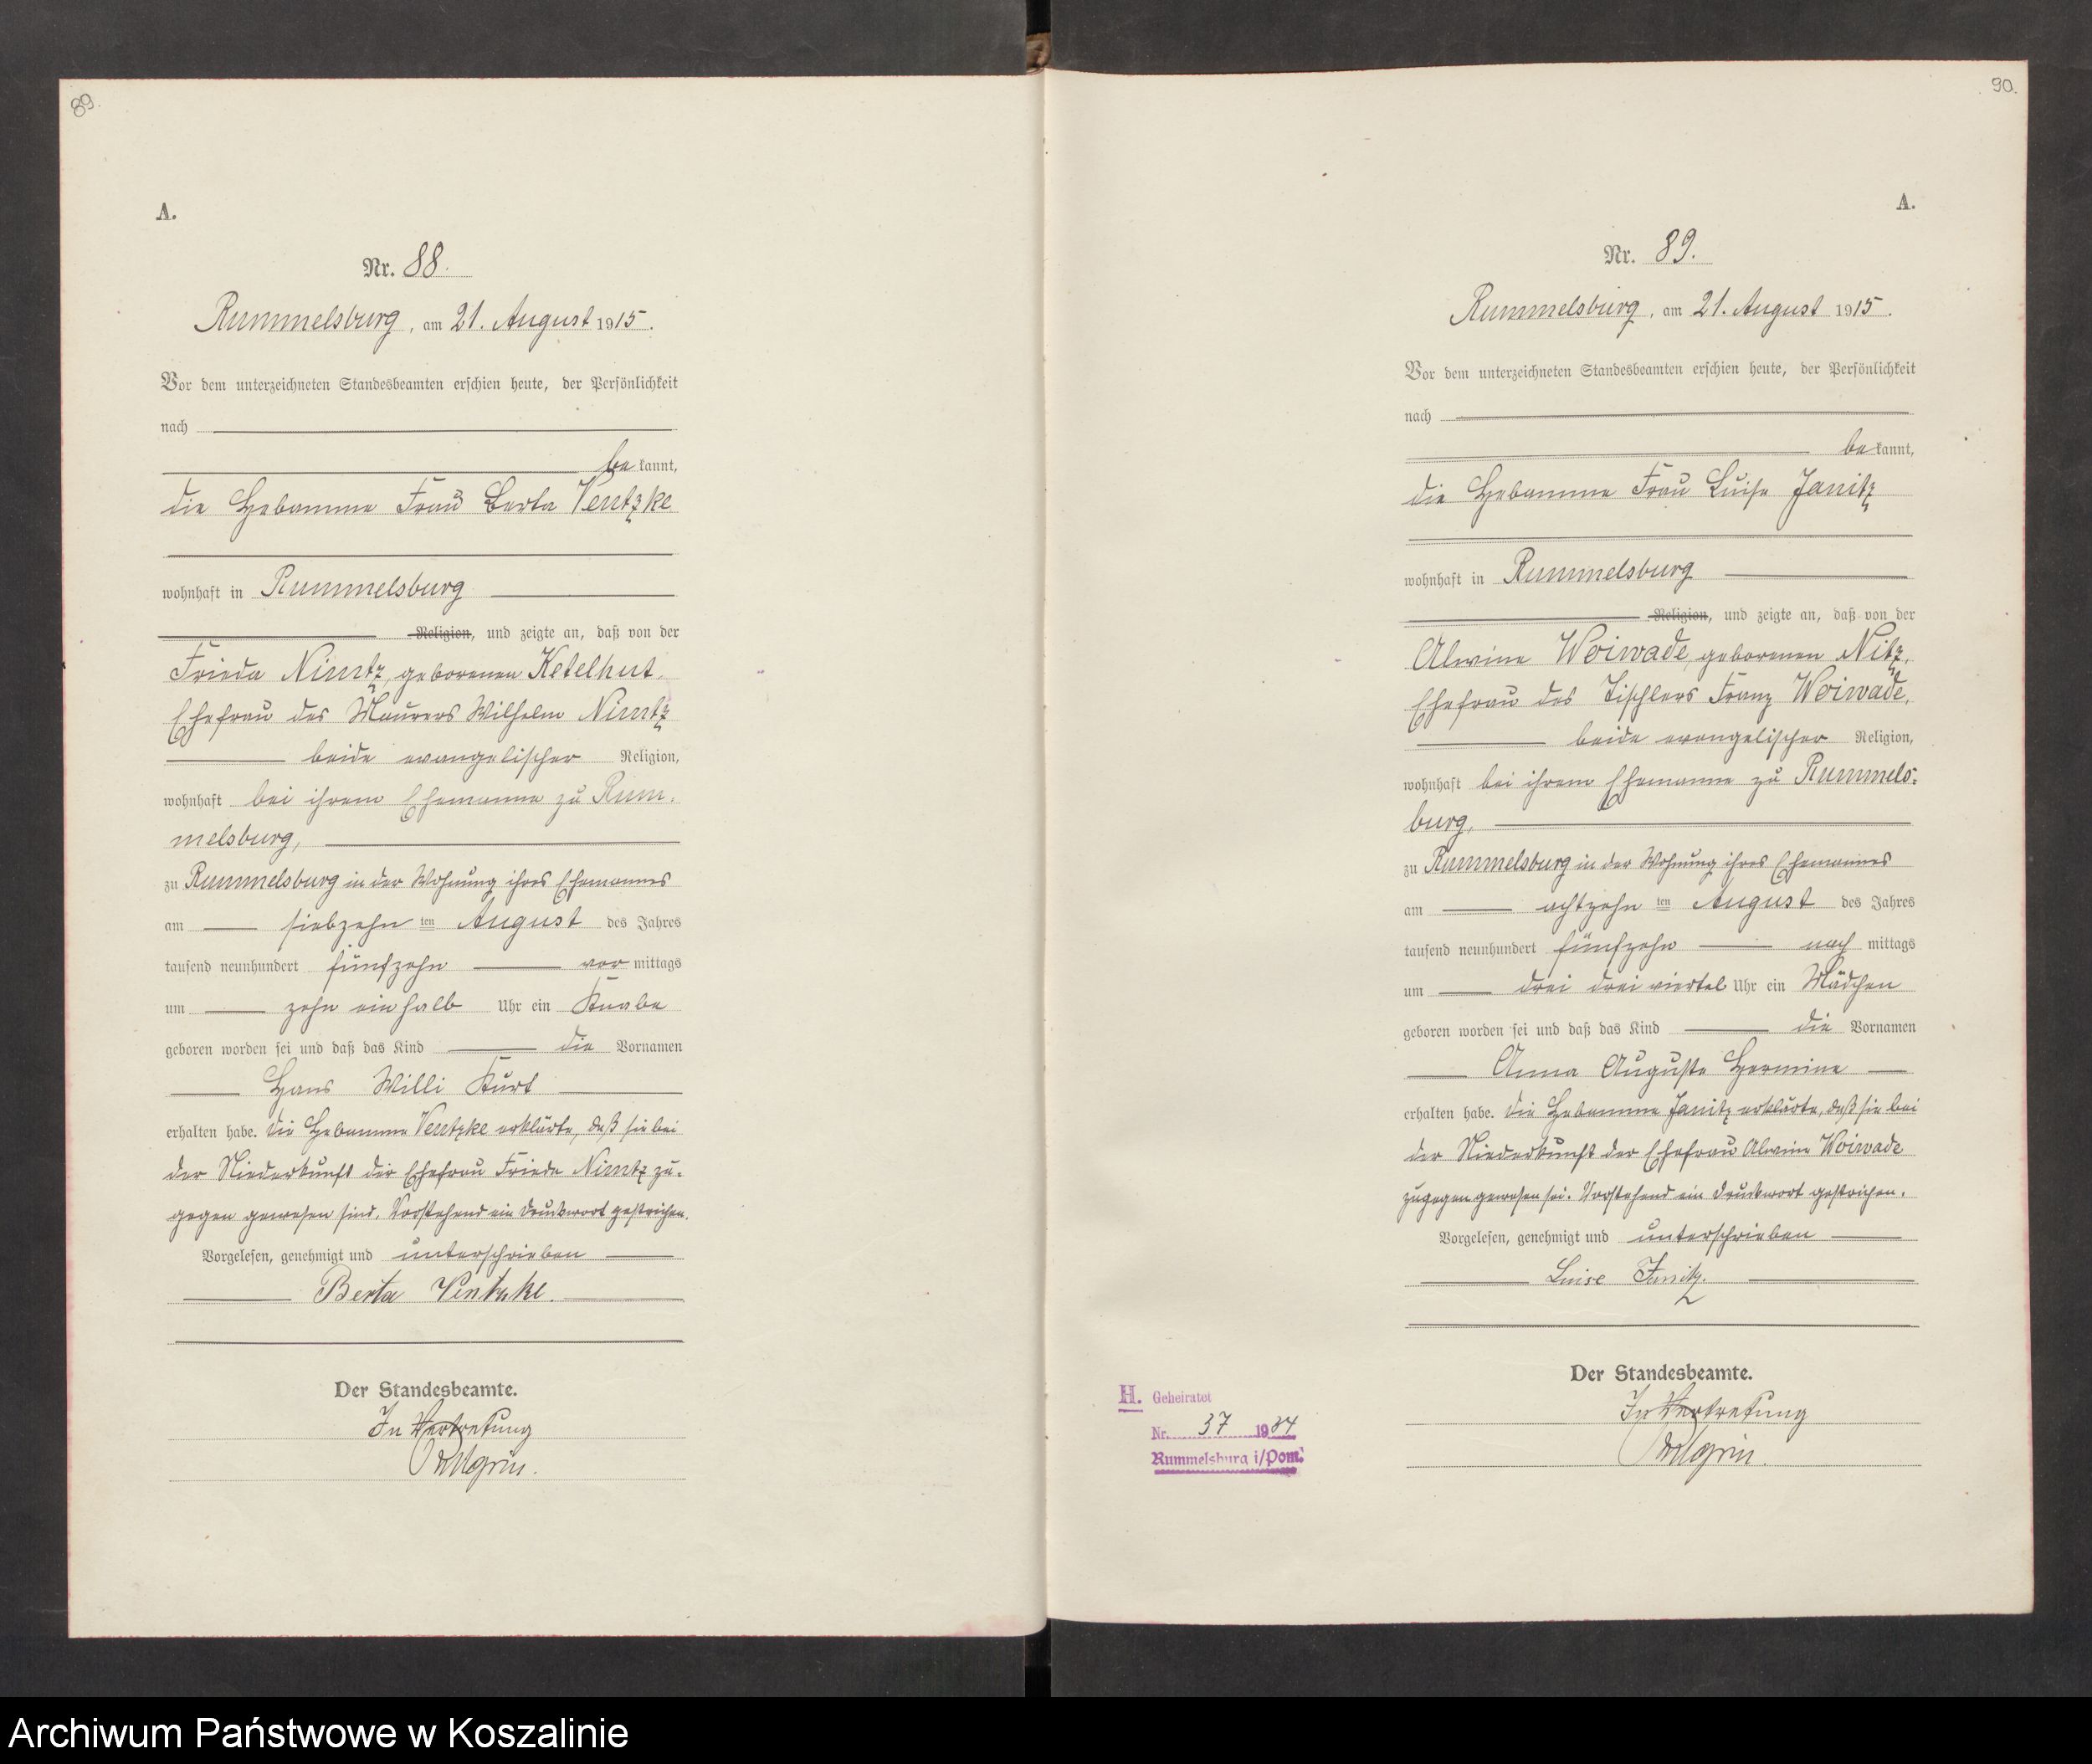 89.
A.
Nr. 88.
Rummelsburg, am 21. August 1915.
Vor dem unterzeichneten Standesbeamten erschien heute, der Persönlichkeit
nach
be kannt,
die Hebamme Frau Berta Ventzke
wohnhaft in Rummelsburg
Religion, und zeigte an, daß von der
Frieda Nimtz, geborenen Ketelhut,
Ehefrau des Maurers Wilhelm Nimtz
beide evangelischer Religion,
wohnhaft bei ihrem Ehemanne zu Rum-
melsburg,
zu Rummelsburg in der Wohnung ihres Ehemannes
am siebzehn ten August des Jahres
tausend neunhundert fünfzehn vor mittags
um zehn einhalb Uhr ein Knabe
geboren worden sei und daß das Kind die Vornamen
Hans Willi Kurt
erhalten habe. Die Hebamme Ventzke erklärte, daß sie bei
der Niederkunft der Ehefrau Frieda Nimtz zu-
gegen gewesen sind. Vorstehend ein Druckwort gestrichen.
Vorgelesen, genehmigt und unterschrieben
Berta Ventzke.
Der Standesbeamte.
In Vertretung
90.
A.
Nr. 89.
Rummelsburg, am 21. August 1915.
Vor dem unterzeichneten Standesbeamten erschien heute, der Persönlichkeit
nach
be kannt,
die Hebamme Frau Luise Janitz
wohnhaft in Rummelsburg
Religion, und zeigte an, daß von der
Alwine Woiwade, geborenen Nitz,
Ehefrau des Tischlers Franz Woiwade,
beide evangelischer Religion,
wohnhaft bei ihrem Ehemanne zu Rummels-
burg,
zu Rummelsburg in der Wohnung ihres Ehemannes
am achtzehn ten August des Jahres
tausend neunhundert fünfzehn nach mittags
um drei dreiviertel Uhr ein Mädchen
geboren worden sei und daß das Kind die Vornamen
Anna Auguste Hermine
erhalten habe. Die Hebamme Janitz erklärte, daß sie bei
der Niederkunft der Ehefrau Alwine Woiwade
zugegen gewesen sei. Vorstehend ein Druckwort gestrichen.
Vorgelesen, genehmigt und unterschrieben
Luise Janitz.
Der Standesbeamte.
In Vertretung
H. Geheiratet
Nr. 37 1934
Rummelsburg i/Pom.
Archiwum Państwowe w Koszalinie